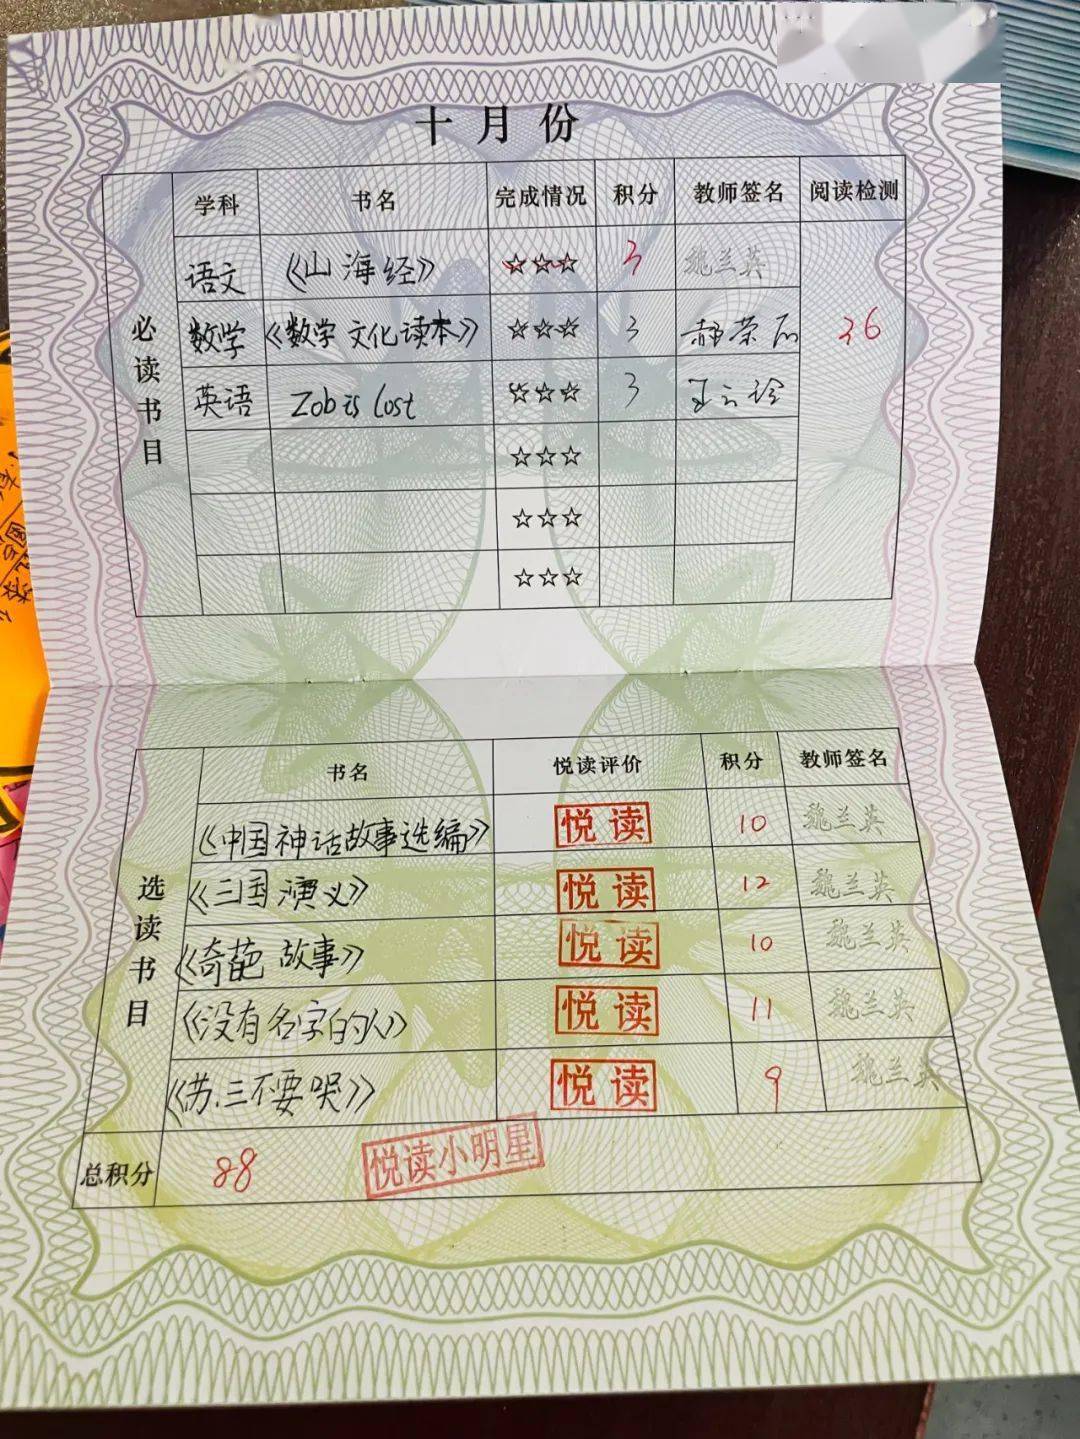 十月份
学科 书名 完成情况 积分 教师签名 阅读检测
必读书目
语文 《山海经》 ☆☆☆ 3 魏兰英
数学 《数学文化读本》 ☆☆☆ 3 36
英语 Zob is lost ☆☆☆ 3
☆☆☆
☆☆☆
☆☆☆
书名 悦读评价 积分 教师签名
选读书目
《中国神话故事选编》 悦读 10 魏兰英
《三国演义》 悦读 12 魏兰英
《奇葩故事》 悦读 10 魏兰英
《没有名字的人》 悦读 11 魏兰英
《苏三不要哭》 悦读 9 魏兰英
总积分 88 悦读小明星